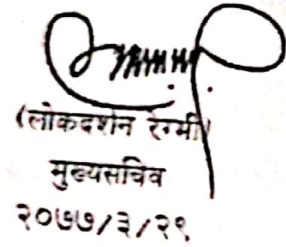 (लोकदर्शन रेग्मी)
मुख्यसचिव
२०७७/३/२९